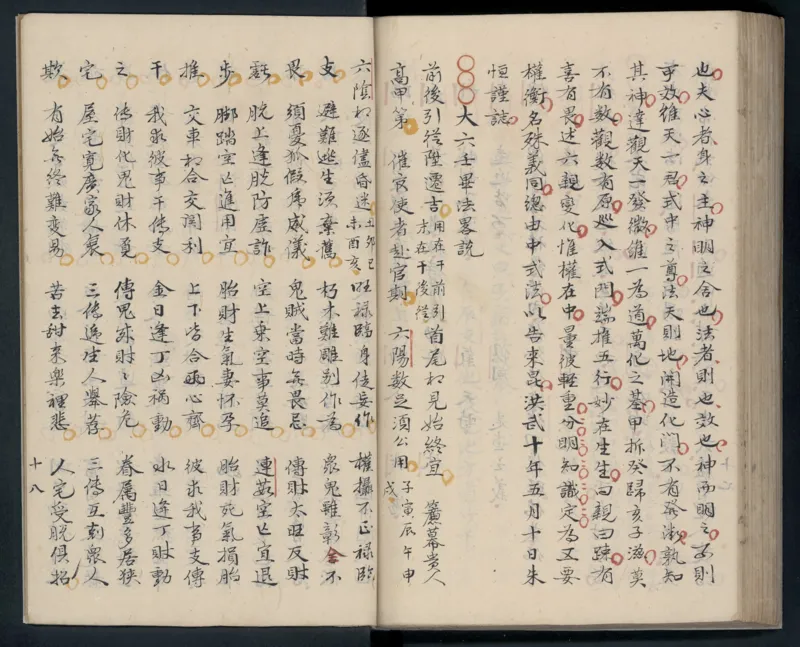 也夫心者身之主神明之舍也法者則也效也神而明之方則
可放維天一君式中之尊法天則地開造化門不有發泄孰知
其神達觀天一發微維一為道萬化之基甲拆癸歸亥子滋莫
不有數觀數有原巡入式門端推五行妙在生生曰親曰疎有
喜有畏述六親變化惟權在中量彼輕重分明知識定為又要
權衡名殊義同總由中式法以告來昆洪武十年五月十日朱
恒謹誌
○○○大六壬畢法畧說
前後引從陞遷吉用在干前引末在干後從首尾相見始終宜 簾幕貴人
高甲第 催官使者赴官期 六陽數足須公用子寅辰午申戌
六陰相逐儘昏迷丑卯巳未酉亥旺祿臨身徒妄作 權攝不正祿臨
支 避難逃生須棄舊 朽木難雕別作為 衆鬼雖彰全不
畏 須憂狐假虎威儀 鬼賊當時無畏忌 傳財太旺反財
虧 脫上逢脫防虛詐 空上乘空事莫追 進茹空亡宜退
步 腳踏空亡進用宜 胎財生氣妻懷孕 胎財死氣損胎
推 交車相合交関利 上下皆合兩心齊 彼求我事支傳
干 我求彼事干傳支 金日逢丁凶禍動 水日逢丁財動
之 傳財化鬼財休覓 傳鬼成財財險危 眷属豐多居狹
宅 屋宅寬廣家人衰 三傳遞生人舉荐 三傳互剋衆人
欺 有始無終難變易 苦去甜來樂裡悲 人宅受脫俱招
十八